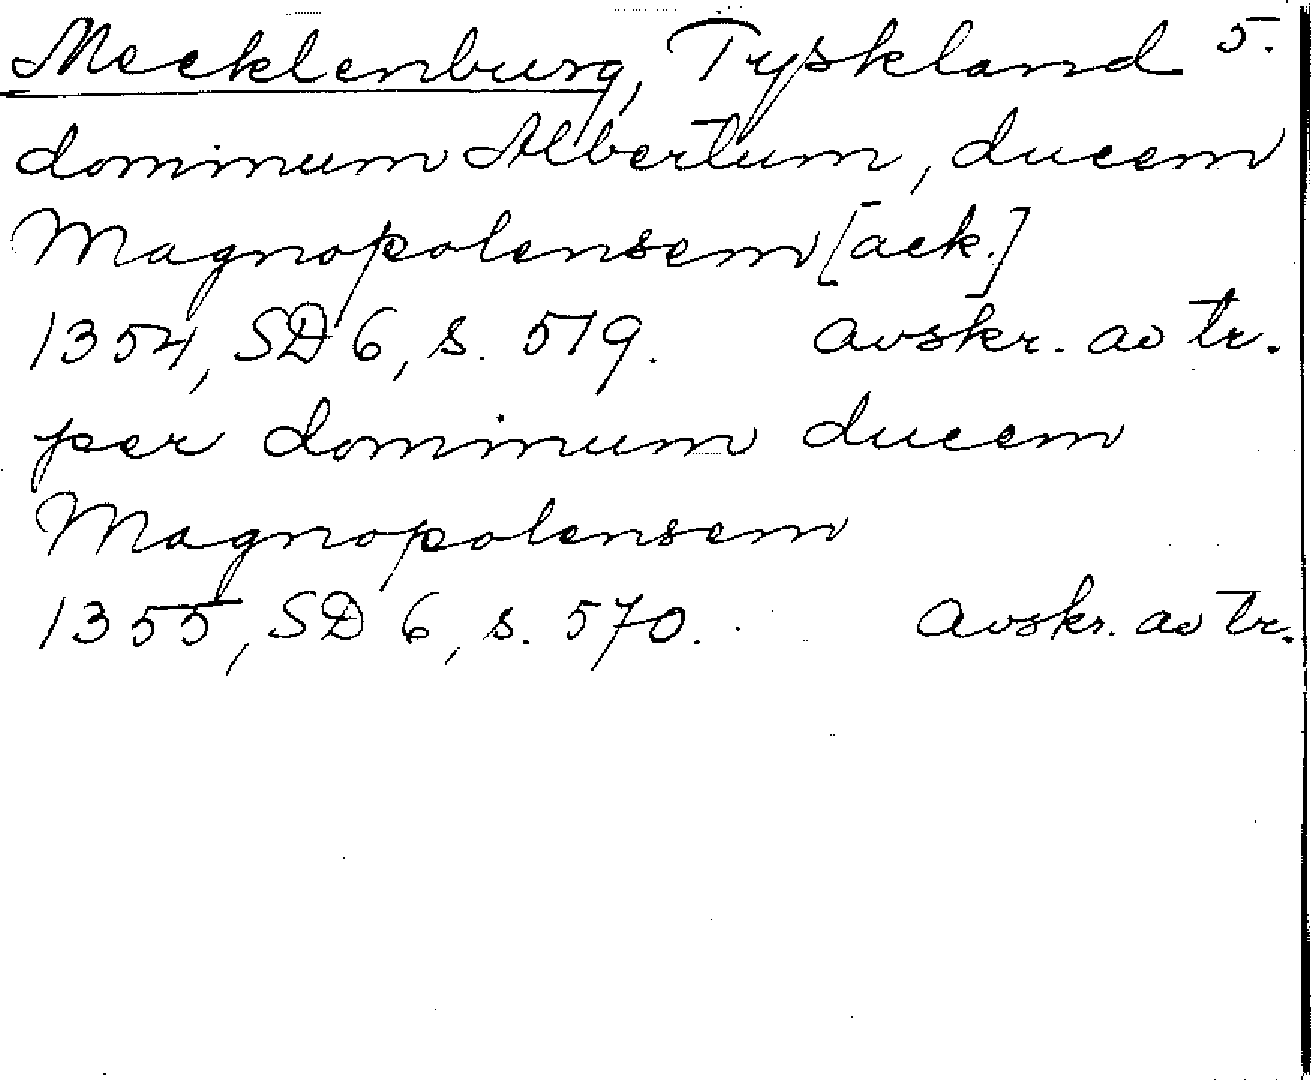 Mecklenburg, Tyskland 5.
dominum Albertum, ducem
Magnopolensem [ack.]
1354, SD 6, s. 519. avskr. av tr.
per dominum ducem
Magnopolensem
1355, SD 6, s. 570. avskr. av tr.